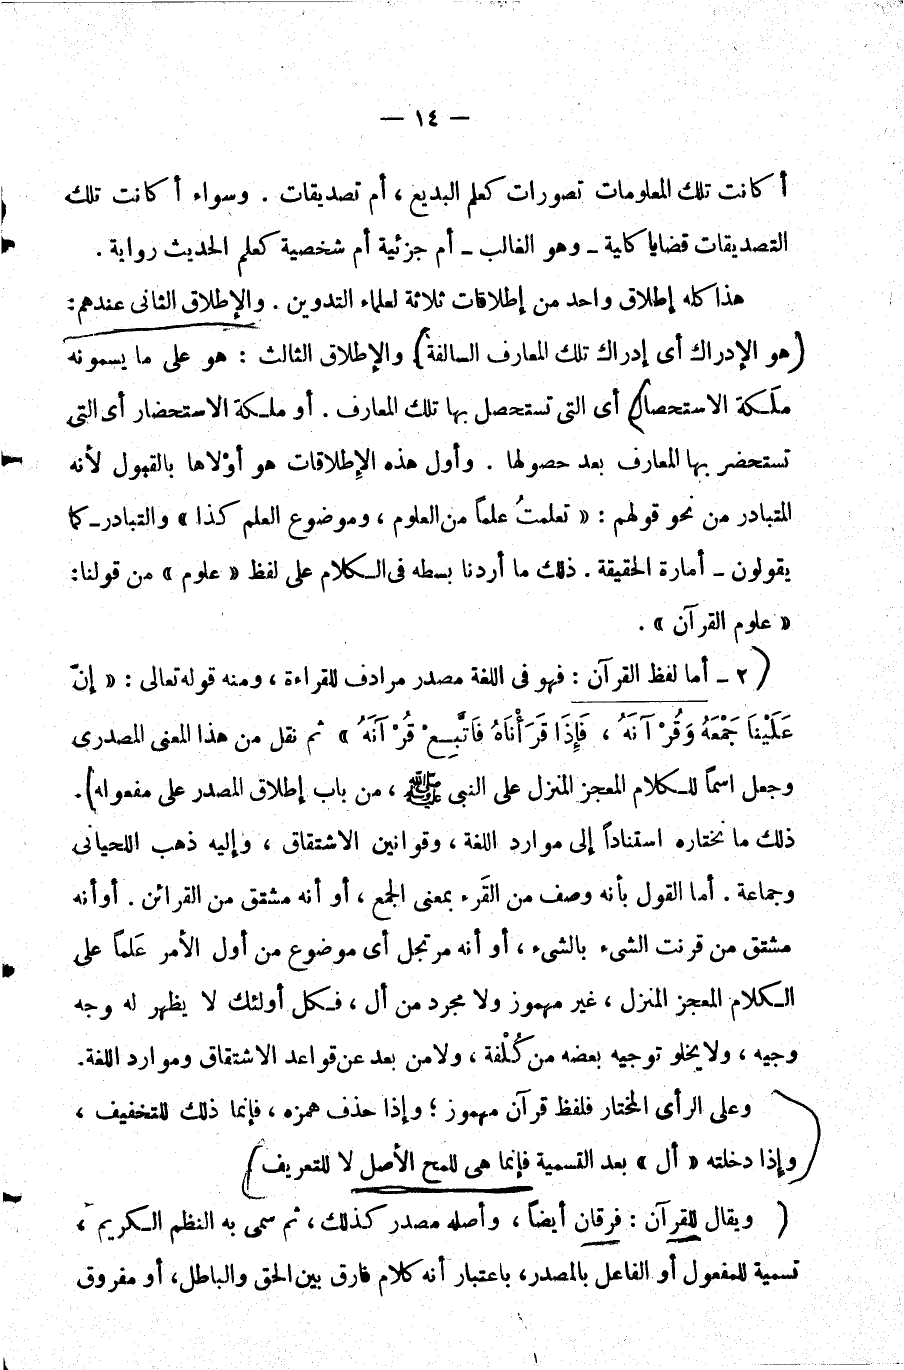 — ١٤ —
أكانت تلك المعلومات تصورات كعلم البديع ، أم تصديقات . وسواء أكانت تلك
التصديقات قضايا كلية ــ وهو الغالب ــ أم جزئية أم شخصية كعلم الحديث رواية .
هذا كله إطلاق واحد من إطلاقات ثلاثة لعلماء التدوين . والإطلاق الثانى عندهم :
( هو الإدراك أى إدراك تلك المعارف السالفة ) والإطلاق الثالث : هو على ما يسمونه
ملَكة الاستحصال ) أى التى تستحصل بها تلك المعارف . أو ملكة الاستحضار أى التى
تستحضر بها المعارف بعد حصولها . وأول هذه الإطلاقات هو أوْلاها بالقبول لأنه
المتبادر من نحو قولهم : « تعلمتُ علماً من العلوم ، وموضوع العلم كذا » والتبادر ــ كما
يقولون ــ أمارة الحقيقة . ذلك ما أردنا بسطه فى الكلام على لفظ « علوم » من قولنا :
« علوم القرآن » .
( ٢ ــ أما لفظ القرآن : فهو فى اللغة مصدر مرادف للقراءة ، ومنه قوله تعالى : « إنّ
عَلَيْنَا جَمْعَهُ وَقُرْآنَهُ ، فَإِذَا قَرَأْنَاهُ فَاتَّبِعْ قُرْآنَهُ » ثم نقل من هذا المعنى المصدرى
وجعل اسماً للكلام المعجز المنزل على النبى ﷺ ، من باب إطلاق المصدر على مفعوله ) .
ذلك ما نختاره استناداً إلى موارد اللغة ، وقوانين الاشتقاق ، وإليه ذهب اللحيانى
وجماعة . أما القول بأنه وصف من القَرء بمعنى الجمع ، أو أنه مشتق من القرائن . أو أنه
مشتق من قرنت الشىء بالشىء ، أو أنه مرتجل أى موضوع من أول الأمر عَلماً على
الكلام المعجز المنزل ، غير مهموز ولا مجرد من أل ، فكل أولئك لا يظهر له وجه
وجيه ، ولا يخلو توجيه بعضه من كُلْفة ، ولا من بعد عن قواعد الاشتقاق وموارد اللغة .
وعلى الرأى المختار فلفظ قرآن مهموز ؛ وإذا حذف همزه ، فإنما ذلك للتخفيف ،
وإذا دخلته « أل » بعد التسمية فإنما هى للمح الأصل لا للتعريف )
( ويقال للقرآن : فرقان أيضاً ، وأصله مصدر كذلك ، ثم سمى به النظم الكريم ،
تسمية للمفعول أو الفاعل بالمصدر ، باعتبار أنه كلام فارق بين الحق والباطل ، أو مفروق